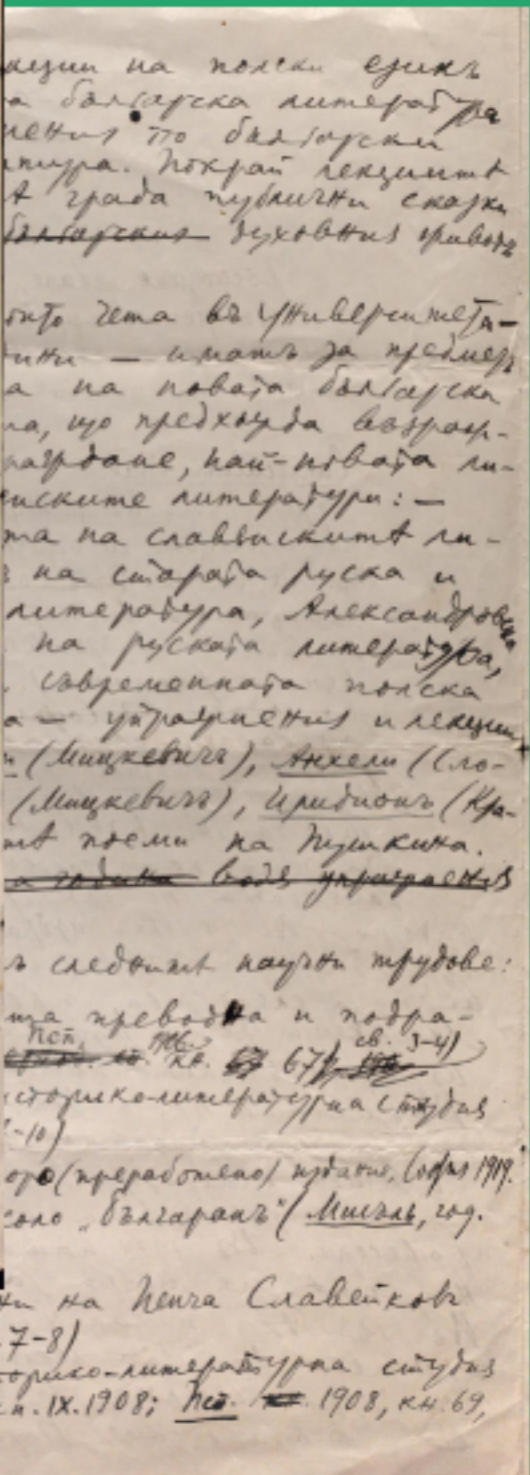 кции на полски езикъ
а българска литература
нения по български
атура. Покрай лекциитѣ
ѣ града публични сказки
българския духовния животъ
оито чета въ Университета-
ини — иматъ за предметъ
а на новата българска
на, що предхожда възраж-
раждане, най-новата ли-
нските литератури: —
та на славянскитѣ ли-
з на старата руска и
литература, Александровска
на руската литература,
съвременната полска
а — упражнения и лекции
(Мицкевичъ), Анхели (Сло-
(Мицкевичъ), Иридионъ (Кра-
итѣ поеми на Пушкина.
а година водя упражнения
ъ следнитѣ научни трудове:
та преводна и подра-
Псп. кн. 67, св. 3-4)
сторико-литературна студия
-10)
оро (преработено) издание, София 1919.
коло „Българанъ“ (Мисъль, год.
ни на Пенча Славейковъ
7-8)
торико-литературна студия
кн. IX.1908; Псп. 1908, кн. 69,